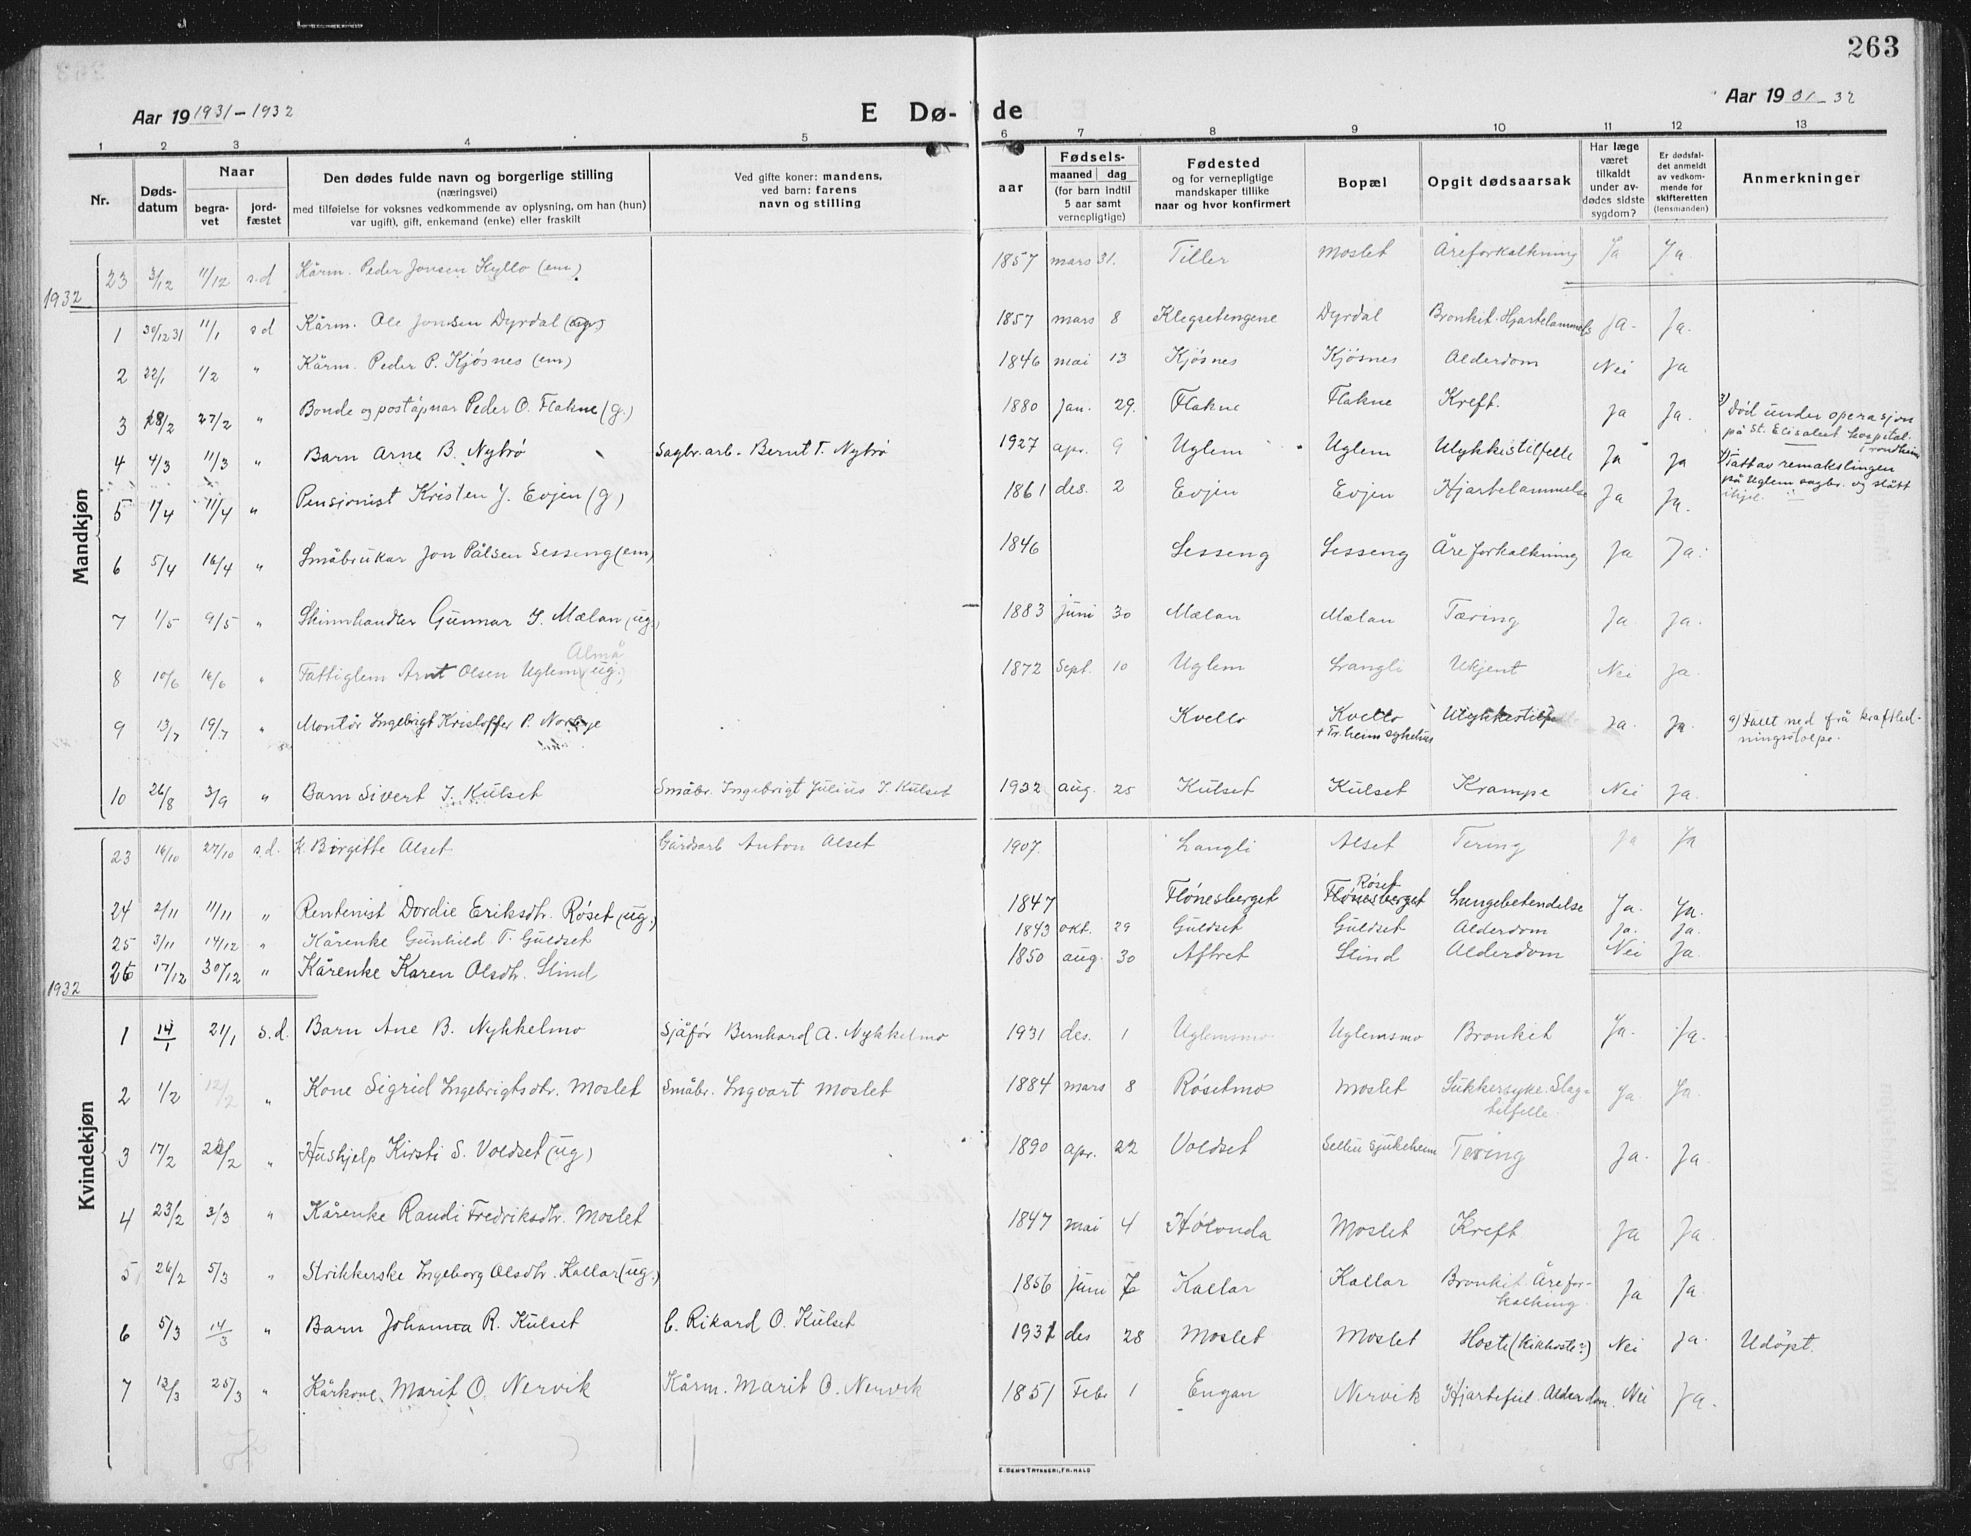 263
Aar 19 1931-1932
E Dø- de
Aar 19 31-32
1 2 3 4 5 6 7 8 9 10 11 12 13
Nr.
Døds-
datum
Naar
begra-
vet
jord-
fæstet
Den dødes fulde navn og borgerlige stilling
(næringsvei)
med tilføielse for voksnes vedkommende av oplysning, om han (hun)
var ugift), gift, enkemand (enke) eller fraskilt
Ved gifte koner: mandens,
ved barn: farens
navn og stilling
aar
Fødsels-
maaned dag
(for barn indtil
5 aar samt
vernepligtige)
Fødested
og for vernepligtige
mandskaper tillike
naar og hvor konfirmert
Bopæl
Opgit dødsaarsak
Har læge
været
tilkaldt
under av-
dødes sidste
sygdom?
Er dødsfal-
det anmeldt
av vedkom-
mende for
skifteretten
(lensmanden)
Anmerkninger
Mandkjøn
23 3/12 11/12 s.d Kårm. Peder Jonsen Kyllo (em) 1857 mars 31. Tiller Moslet Åreforkalkning Ja Ja.
1932
1 30/12 31 11/1 s d Kårm. Ole Jonsen Dyrdal 1857 mars 8 Klegsetengene Dyrdal Bronkit. Hjartelammels Ja. Ja.
2 22/1 1/2 " Kårm. Peder P. Kjøsnes (em) 1846 mai 13 Kjøsnes Kjøsnes Alderdom Nei Ja
3 18/2 27/2 " Bonde og poståpnar Peder O. Flakne (g.) 1880 Jan. 29. Flakne Flakne Kreft. Ja Ja. 3) Død under operasjon
på St. Elisabet hospital.
Trondheim
4 4/3 11/3 " Barn Arne B. Nybrø Sagbr.arb. Bernt T. Nybrø 1927 apr. 9 Uglem Uglem Ulykkestilfelle Ja Ja Tatt av remakslingen
på Uglem sagbr. og slått
ihjel.
5 1/4 11/4 " Pensjonist Kristen J. Evjen (g) 1861 des. 2 Evjen Evjen Hjartelammelse Ja Ja.
6 5/4 16/4 " Småbrukar Jon Pålsen Sesseng (em) 1846 Sesseng Sesseng Åreforkalkning Ja Ja.
7 1/5 9/5 " Skinnhandler Gunnar J. Mælan (ug.) 1883 Juni 30 Mælan Mælan Tæring Ja Ja.
Almå
8 10/6 16/6 " Fattiglem Arnt Olsen Uglem (ug.) 1872 Sept. 10 Uglem Langli Ukjent Nei Ja.
9 13/7 19/7 " Montør Ingebrigt Kristoffer P. Norbye Kvello Kvello Ulykkestilfelle Ja. Ja. 9) Falt ned frå kraftled-
+ Tr.heim sykehus ningstolpe.
10 26/8 3/9 " Barn Sivert I. Kulset Småbr. Ingebrigt Julius I. Kulset 1932 aug. 25 Kulset Kulset Krampe Nei Ja.
Kvindekjøn
23 16/10 27/10 s.d. K. Birgitte Alset Gårdsarb Anton Alset 1907. Langli Alset Tering Ja Ja
Røset
24 2/11 11/11 " Rentenist Dordie Eriksdtr. Røset (ug.) 1847 Flønesberget Flønesberget Lungebetendelse Ja. Ja.
25 3/11 14/12 " Kårenke Gunhild T. Guldset 1843 okt. 29 Guldset Guldset Alderdom Ja. Ja.
26 17/12 30/12 " Kårenke Karen Olsdtr. Slind 1850 aug. 30 Aftret Slind Alderdom Nei Ja.
1932
1 14/1 21/1 s.d. Barn Ane B. Nykkelmo Sjåfør Bernhard A. Nykkelmo 1931 des. 1 Uglemsmo Uglemsmo Bronkit Ja. Ja.
2 1/2 12/2 " Kone Sigrid Ingebrigtsdtr. Moslet Småbr. Ingvart Moslet 1884 mars 8 Røsetmo Moslet Sukkersyke. Slag-
tilfelle. Ja. Ja.
3 17/2 26/2 " Hushjelp Kirsti S. Voldset (ug) 1890 apr. 22 Voldset Selbu sjukeheim Tering Ja. Ja.
4 23/2 3/3 " Kårenke Randi Fredriksdtr. Moslet 1847 mai 4 Hølonda Moslet Kreft Ja Ja.
5 26/2 5/3 " Strikkerske Ingeborg Olsdtr. Kallar (ug.) 1856 Juni 7 Kallar Kallar Bronkit Årefor-
kalking. Ja Ja.
6 5/3 14/3 " Barn Johanna R. Kulset G. Rikard O. Kulset 1931 des 28 Moslet Moslet Hoste (Kikhoste?) Nei Ja. Udøpt.
7 13/3 25/3 " Kårkone Marit O. Nervik Kårm. Marit O. Nervik 1851 Febr 1 Engan Nervik Hjartefeil. Alderdom. Nei Ja.
E. SEM'S TRYKKERI, FR.HALD